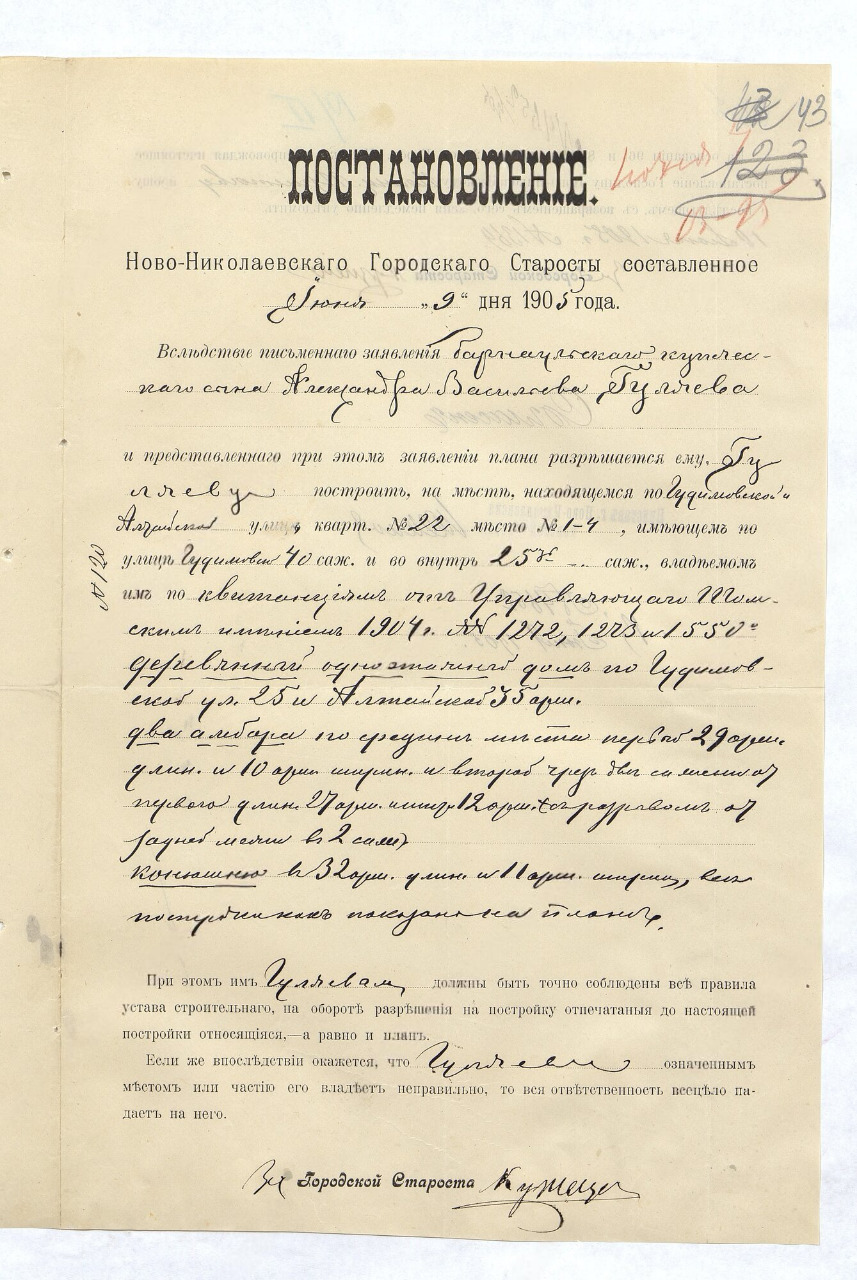 43
123
ПОСТАНОВЛЕНІЕ.
Ново-Николаевскаго Городскаго Старосты составленное
Іюня „9“ дня 1905 года.
Вслѣдствіе письменнаго заявленія Барнаульскаго купчес-
каго сына Александра Васильева Гуляева
и представленнаго при этомъ заявленіи плана разрѣшается ему, Гу
ляеву построить, на мѣстѣ, находящемся по Гудимовской и
Алтайской улиц кварт. № 22 мѣсто № 1-4, имѣющемъ по
улицѣ Гудимовск 40 саж. и во внутрь 25 саж., владѣемомъ
имъ по квитанціямъ отъ Управляющаго Том-
скимъ имѣніемъ 1904 г. №№ 1272, 1273 и 1550
деревянный одноэтажный домъ по Гудимов-
ской ул. 25 и Алтайской 35 арш.
два амбара по срединѣ мѣста первый 29 арш.
длин. и 10 арш. ширин. и второй чрез двѣ сажени от
первого длин. 27 арш. и шир. 12 арш. съ разрывомъ от
задней межи в 2 саж)
конюшню в 32 арш. длин. и 11 арш. ширин, все
постройки какъ показано на планѣ.
№ 120
При этомъ имъ Гуляевам, должны быть точно соблюдены всѣ правила
устава строительнаго, на оборотѣ разрѣшенія на постройку отпечатаныя до настоящей
постройки относящіяся,—а равно и планъ.
Если же впослѣдствіи окажется, что Гуляевъ означеннымъ
мѣстомъ или частію его владѣетъ неправильно, то вся отвѣтственность всецѣло па-
даетъ на него.
За Городской Староста